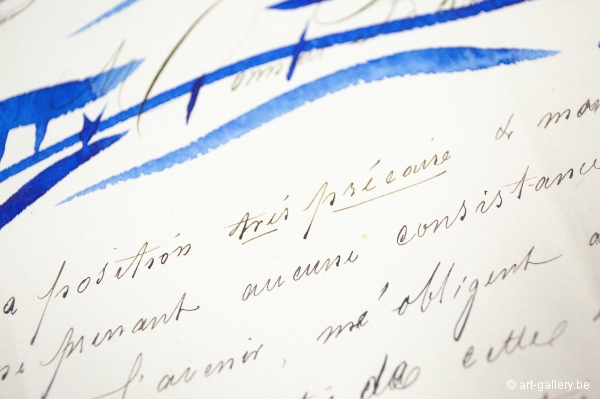 a position trés précaire & mon
ne prenant aucune consistance
l'avenir, m'obligent a
de cette
© art-gallery.be